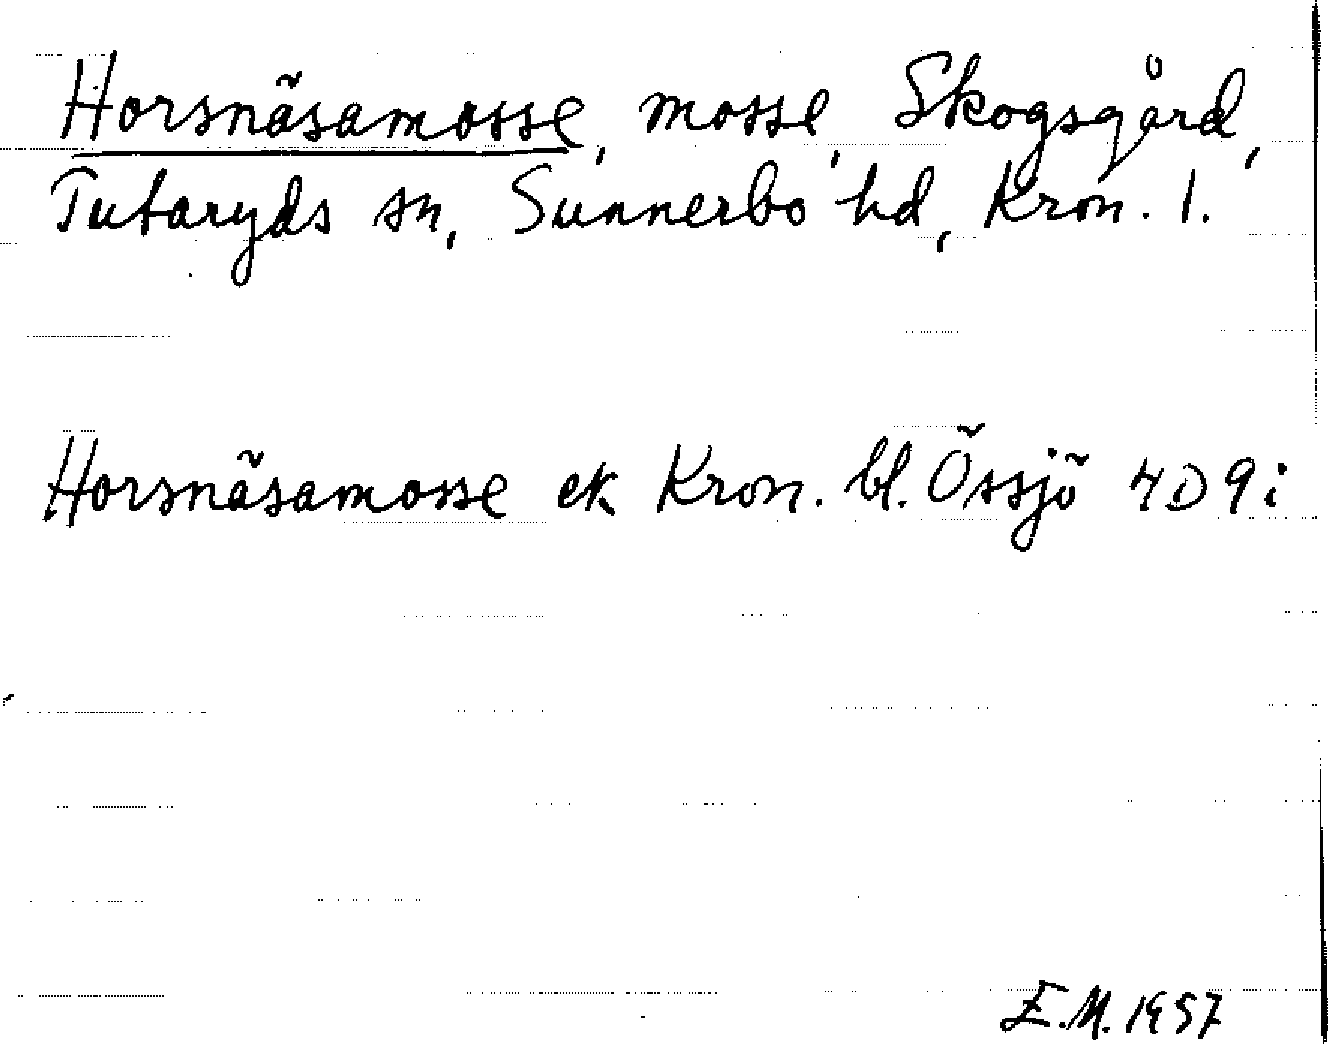 Horsnäsamosse, mosse, Skogsgård,
Tutaryds sn, Sunnerbo hd, Kron. l.
Horsnäsamosse ek Kron. bl. Össjö 4D 9i
E.M. 1957